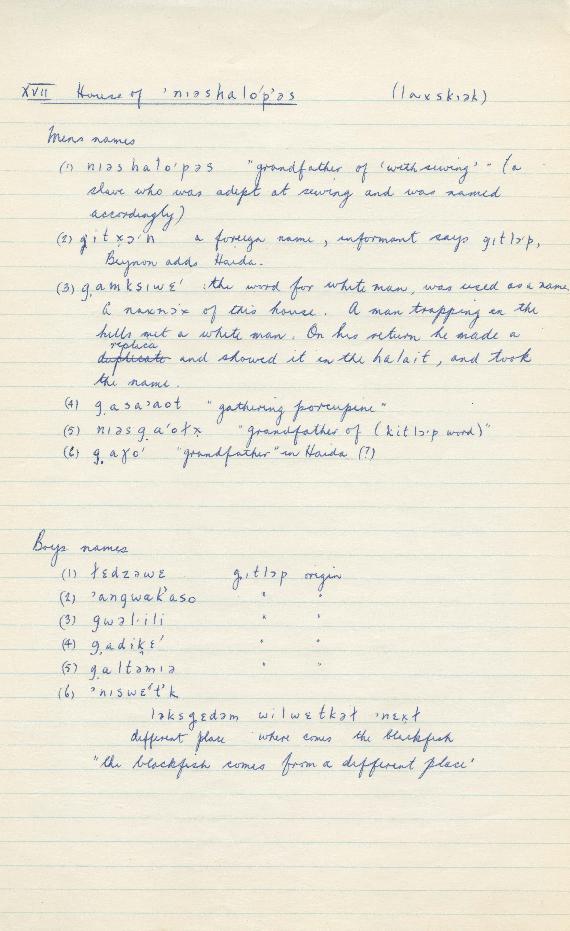 XVII House of 'niəshalo'p'əs (laxskiək)
Mens names
(1) niəshalo'pəs "grandfather of 'with sewing'" (a
slave who was adept at sewing and was named
accordingly)
(2) g̣itx̣ɔ'n a foreign name, informant says gịtlɔp,
Beynon adds Haida.
(3) g̣amksiwɛ' : the word for white man, was used as a name.
A naxnɔx of this house. A man trapping in the
hills met a white man. On his return he made a
replica
duplicate and showed it in the halait, and took
the name.
(4) g̣asa'aot "gathering porcupine"
(5) niəsg̣a'ołx̣ "grandfather of (kitlɔp word)"
(6) g̣aɣo' "grandfather" in Haida (?)
Boys names
(1) łɛdzəwɛ g̣itlɔp origin
(2) 'angwak'aso " "
(3) gwəl·ili " "
(4) g̣adiḳɛ' " "
(5) g̣altəmiə " "
(6) 'niswɛ't'k
ləksgɛdəm wilwɛtkəł 'nɛxł
different place where comes the blackfish
"the blackfish comes from a different place'